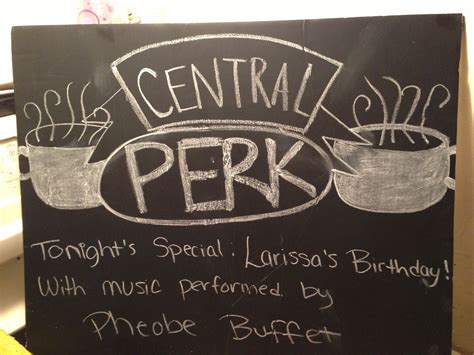 CENTRAL
PERK
Tonight's Special: Larissa's Birthday!
With music performed by
Pheobe Buffet